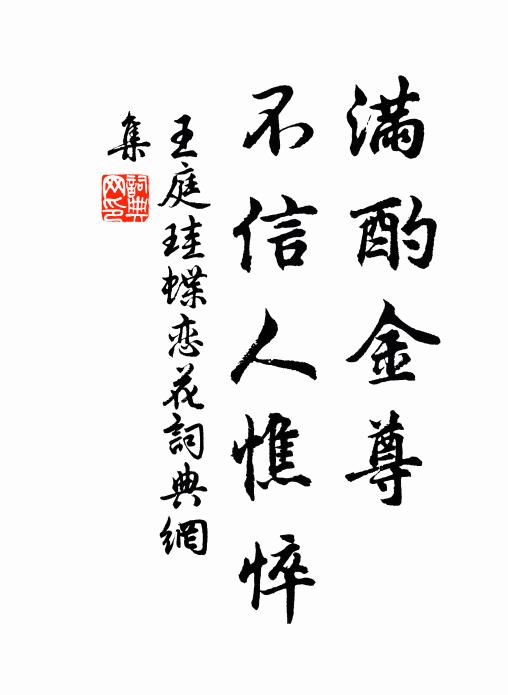 滿酌金尊
不信人憔悴
王庭珪蝶恋花詞典網
集
詞典
网印